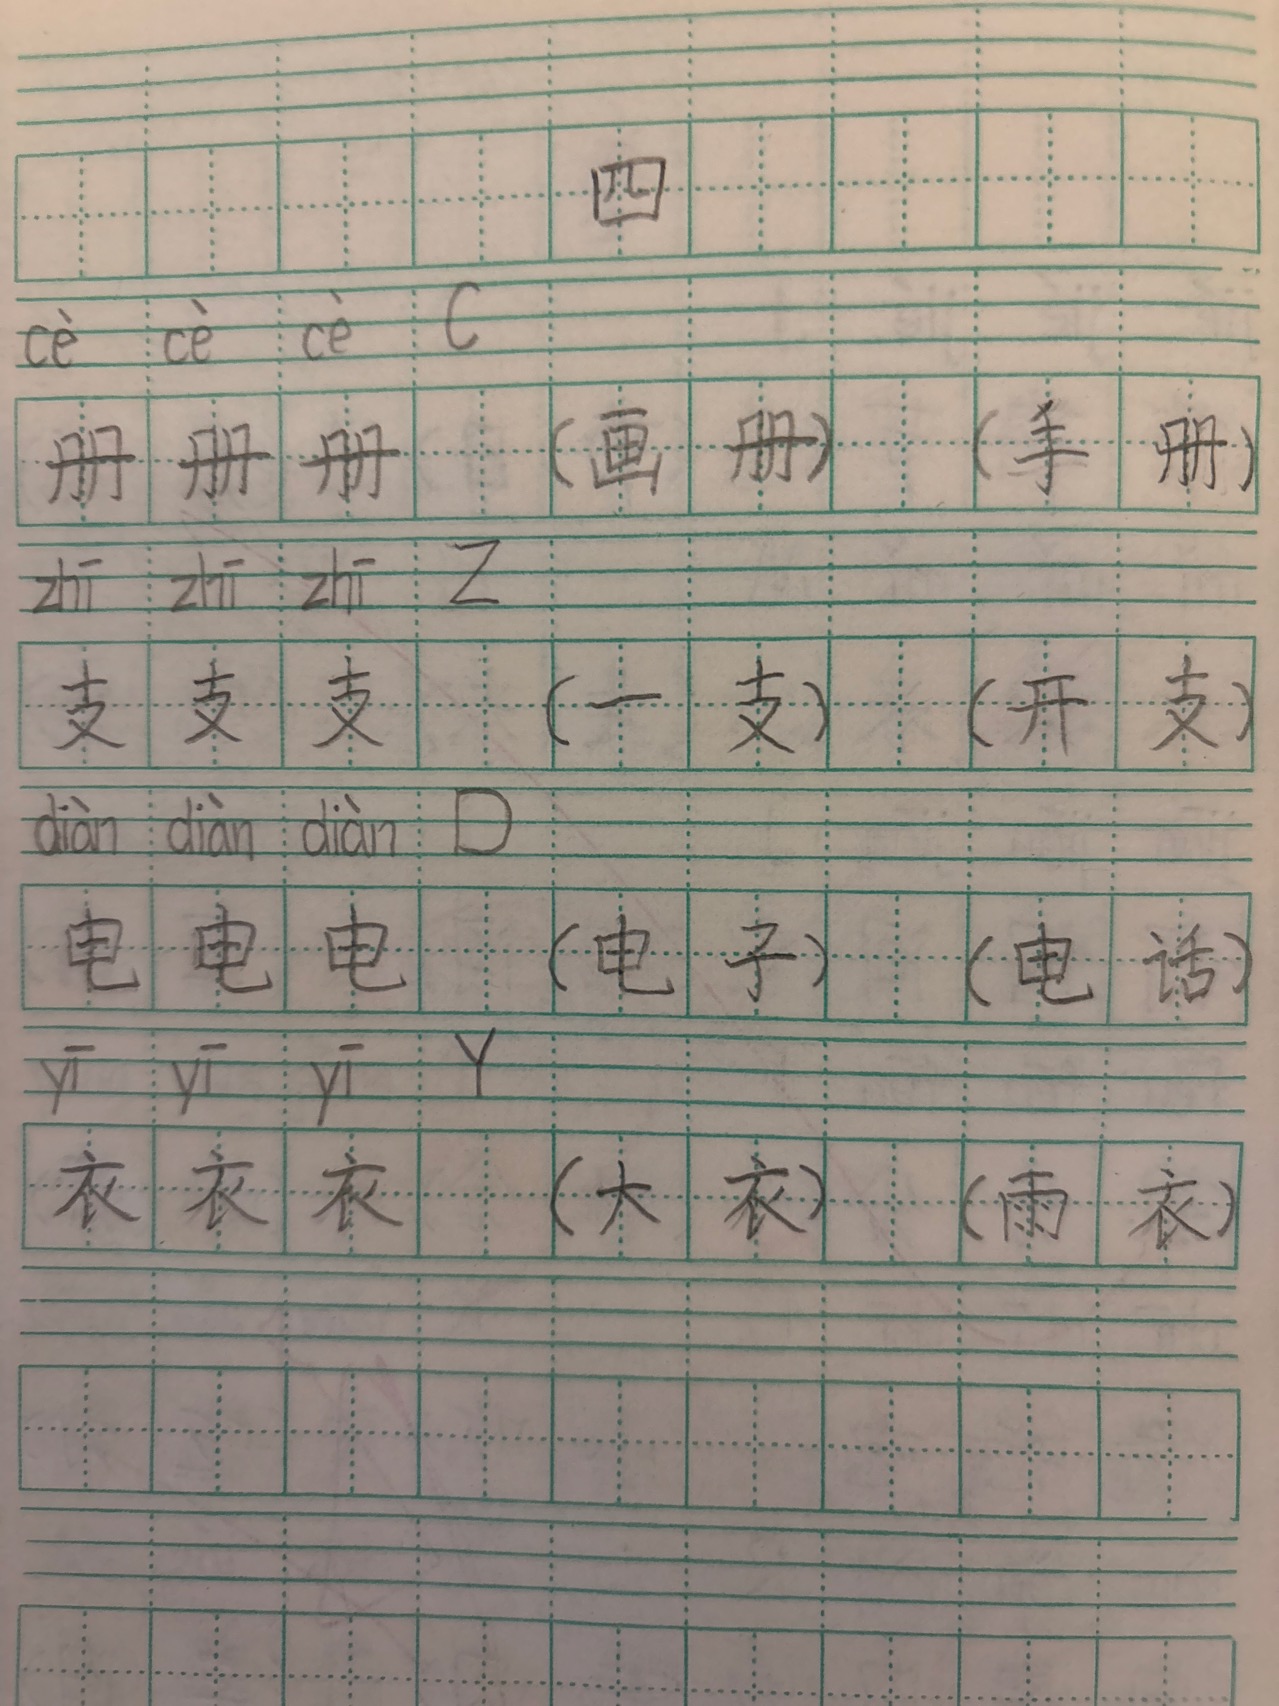 四
cè cè cè C
册 册 册 (画 册) (手 册)
zhī zhī zhī Z
支 支 支 (一 支) (开 支)
diàn diàn diàn D
电 电 电 (电 子) (电 话)
yī yī yī Y
衣 衣 衣 (大 衣) (雨 衣)